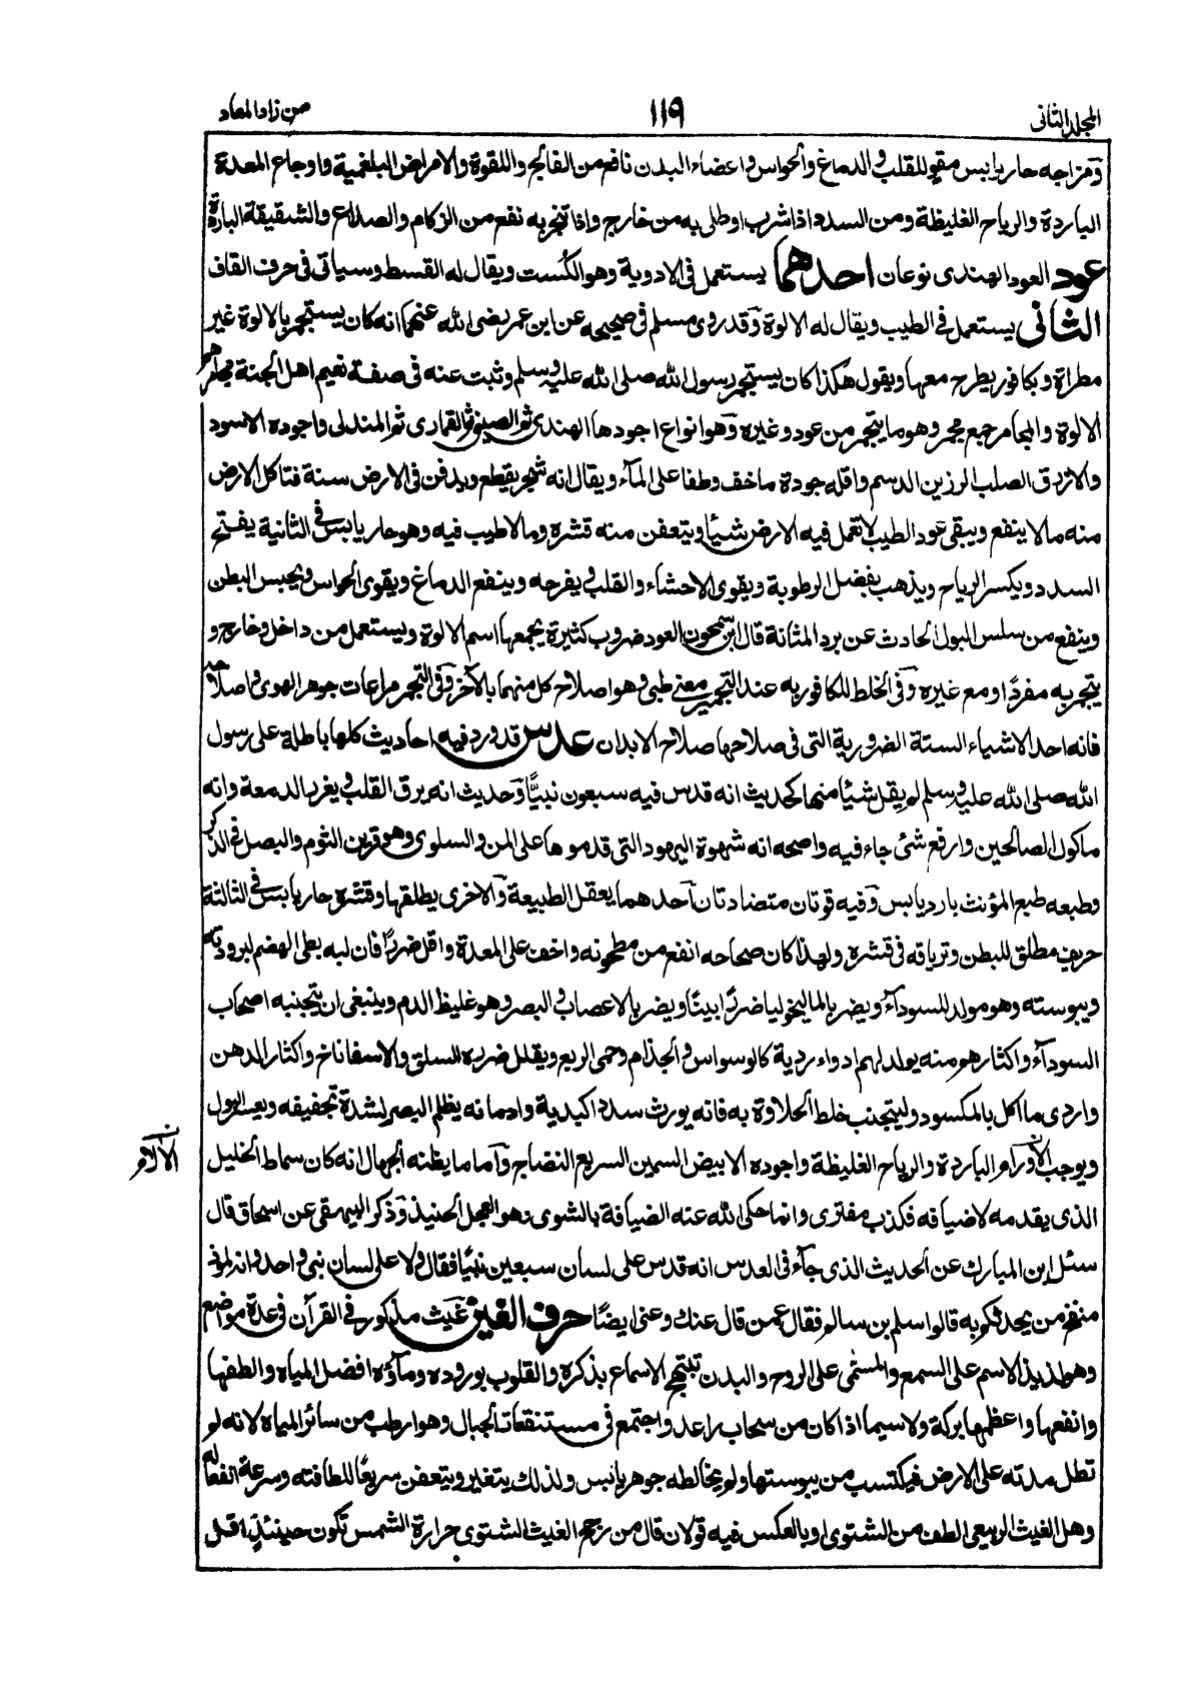 المجلد الثانى
١١٩
من زاد المعاد
ومزاجه حار يابس مقو للقلب والدماغ والحواس واعضاء البدن نافع من الفالج واللقوة والامراض البلغمية واوجاع المعدة
الباردة والرياح الغليظة ومن السدد اذا شرب او طلى به من خارج واذا تبخر به نفع من الزكام والصداع والشقيقة الباردة
عود العود الهندى نوعان احدهما يستعمل فى الادوية وهو الكست ويقال له القسط وسياتى فى حرف القاف
الثانى يستعمل فى الطيب ويقال له الالوة وقد روى مسلم فى صحيحه عن ابن عمر رضى الله عنهما انه كان يستجمر بالالوة غير
مطراة وبكافور يطرح معها ويقول هكذا كان يستجمر رسول الله صلى الله عليه وسلم وثبت عنه فى صفة نعيم اهل الجنة مجامرهم
الالوة والمجامر جمع مجمر وهو ما يتجمر من عود وغيره وهو انواع اجودها الهندى ثم الصينى ثم القمارى ثم المندلى واجوده الاسود
والازرق الصلب الرزين الدسم واقله جودة ما خف وطفا على المآء ويقال انه شجر يقطع ويدفن فى الارض سنة فتاكل الارض
منه ما لا ينفع ويبقى عود الطيب لا تعمل فيه الارض شيأ ويتعفن منه قشره وما لا طيب فيه وهو حار يابس فى الثانية يفتح
السدد ويكسر الرياح ويذهب بفضل الرطوبة ويقوى الاحشاء والقلب ويفرحه وينفع الدماغ ويقوى الحواس ويحبس البطن
وينفع من سلس البول الحادث عن برد المثانة قال ابن سمحون العود ضروب كثيرة يجمعها اسم الالوة ويستعمل من داخل وخارج و
يتجمر به مفردًا ومع غيره وفى الخلط للكافور به عند التجمير معنى طبى وهو اصلاح كل منهما بالآخر وفى التجمر مراعات جوهر الهوى واصلاحه
فانه احد الاشياء الستة الضرورية التى فى صلاحها صلاح الابدان عدس قد ورد فيه احاديث كلها باطلة على رسول
الله صلى الله عليه وسلم لم يقل شيأ منها كحديث انه قدس فيه سبعون نبيًّا وحديث انه يرق القلب ويغزر الدمعة وانه
ماكول الصالحين وارفع شئ جاء فيه واصحه انه شهوة اليهود التى قدموها على المن والسلوى وهو قرين الثوم والبصل فى الذكر
وطبعه طبع المؤنث بارد يابس وفيه قوتان متضادتان آحدهما يعقل الطبيعة والاخرى يطلقها وقشره حار يابس فى الثالثة
حريف مطلق للبطن وترياقه فى قشره ولهذا كان صحاحه انفع من مطحونه واخف على المعدة واقل ضررًا فان لبه بطى الهضم لبرودته
ويبوسته وهو مولد للسودآء ويضر بالماليخوليا ضررًا بينًا ويضر بالاعصاب والبصر وهو غليظ الدم وينبغى ان يتجنبه اصحاب
السودآء واكثارهم منه يولد لهم ادواء ردية كالوسواس والجذام وحمى الربع ويقلل ضرره السلق والاسفاناخ واكثار الدهن
واردى ما اكل بالمكسود وليتجنب خلط الحلاوة به فانه يورث سددا كبدية وادمانه يظلم البصر لشدة تجفيفه ويعسر البول
ويوجب الاورام الباردة والرياح الغليظة واجوده الابيض السمين السريع النضاج وآما ما يظنه الجهال انه كان سماط الخليل
الذى يقدمه لاضيافه فكذب مفترى وانما حكى الله عنه الضيافة بالشوى وهو العجل الحنيذ وذكر البيهقى عن اسحاق قال
سئل ابن المبارك عن الحديث الذى جآء فى العدس انه قدس على لسان سبعين نبيًا فقال ولا على لسان نبى واحد وانه لمؤذ
منفخ من يحدثكم به قالوا سلم بن سالم فقال عمن قال عنك وعنى ايضًا حرف الغين غيث مذكور فى القرآن فى عدة مواضع
وهو لذيذ الاسم على السمع والمسمى على الروح والبدن تبتهج الاسماع بذكره والقلوب بوروده ومآؤه افضل المياه والطفها
وانفعها واعظمها بركة ولا سيما اذا كان من سحاب راعد واجتمع فى مستنقعات الجبال وهو ارطب من سائر المياه لانه لم
تطل مدته على الارض فيكتسب من يبوستها ولم يخالطه جوهر يابس ولذلك يتغير ويتعفن سريعًا للطافته وسرعة انفعاله
وهل الغيث الربيعى الطف من الشتوى او بالعكس فيه قولان قال من رجح الغيث الشتوى حرارة الشمس تكون حينئذٍ اقل
الآلام